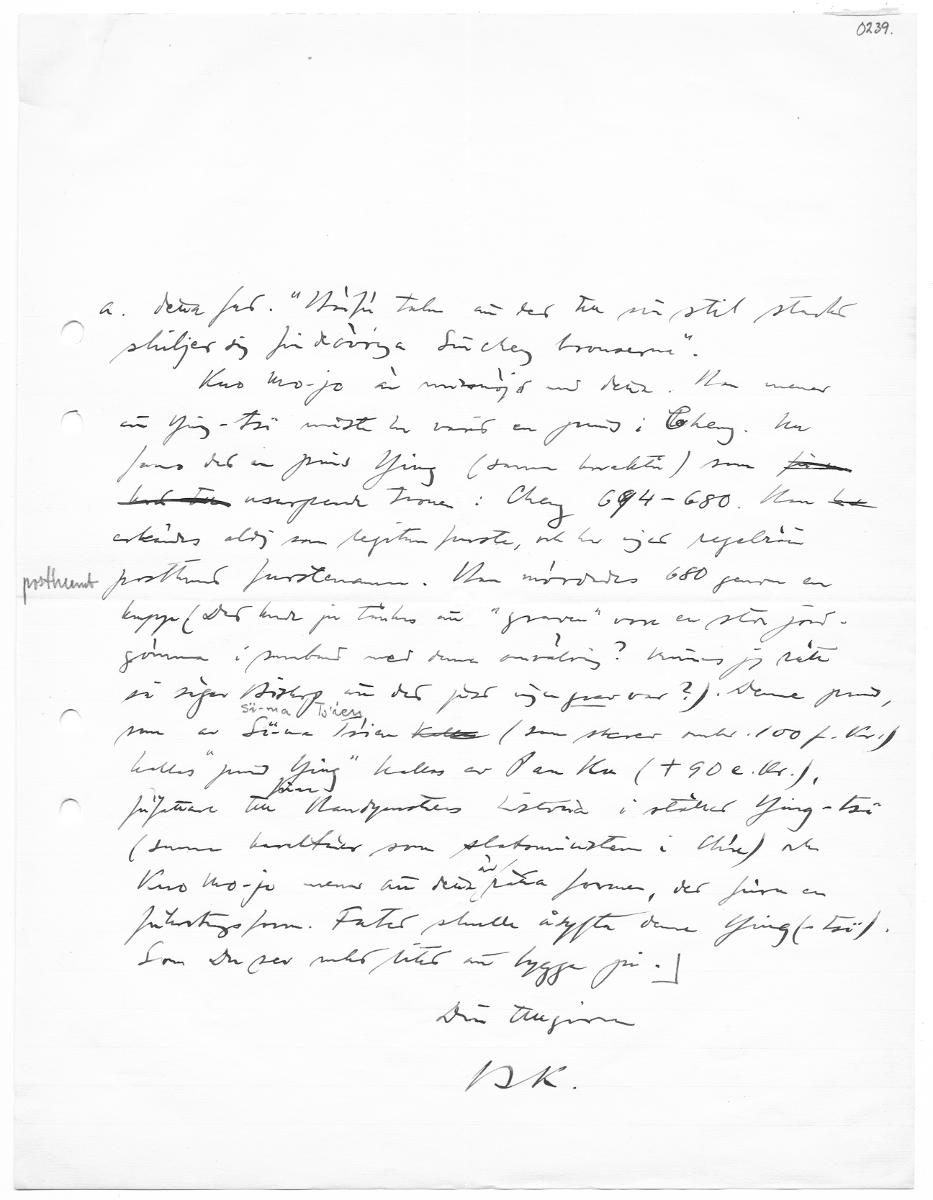 0239.
a. detta fat. "Härför talar att det till sin stil starkt
skiljer sig från de övriga Sincheng bronserna".
Kuo Mo-jo är missnöjd med detta. Han menar
att Ying-tsï måste ha varit en furst i Cheng. Nu
fanns det en furst Ying (samma karaktär) som
usurperade tronen i Cheng 694-680. Han
erkändes aldrig som legitim furste, och har ingen
posthumt furstenamn. Han mördades 680 genom en
posthumt
kupp (Det kunde ju tänkas att "graven" vore en stor jord-
gömma i samband med denna omvälvning? Minns jag rätt
så säger Bishop att det just ingen grav var?). Denne furst,
Sï-ma Ts'ien
som av Sï-ma Ts'ien (som skrev omkr. 100 f. Kr.)
kallas "furst Ying" kallas av Pan Ku (+ 90 e. Kr.),
författare till Handynastiens historia i stället Ying-tsï
(samma karaktärer som statsministern i Ch'u) och
Kuo Mo-jo menar att detta är rätta formen, det förra en
förkortningsform. Fatet skulle åsyfta denne Ying(-tsï).
Som Du ser mkt litet att bygga på.]
Din tillgivne
BK.